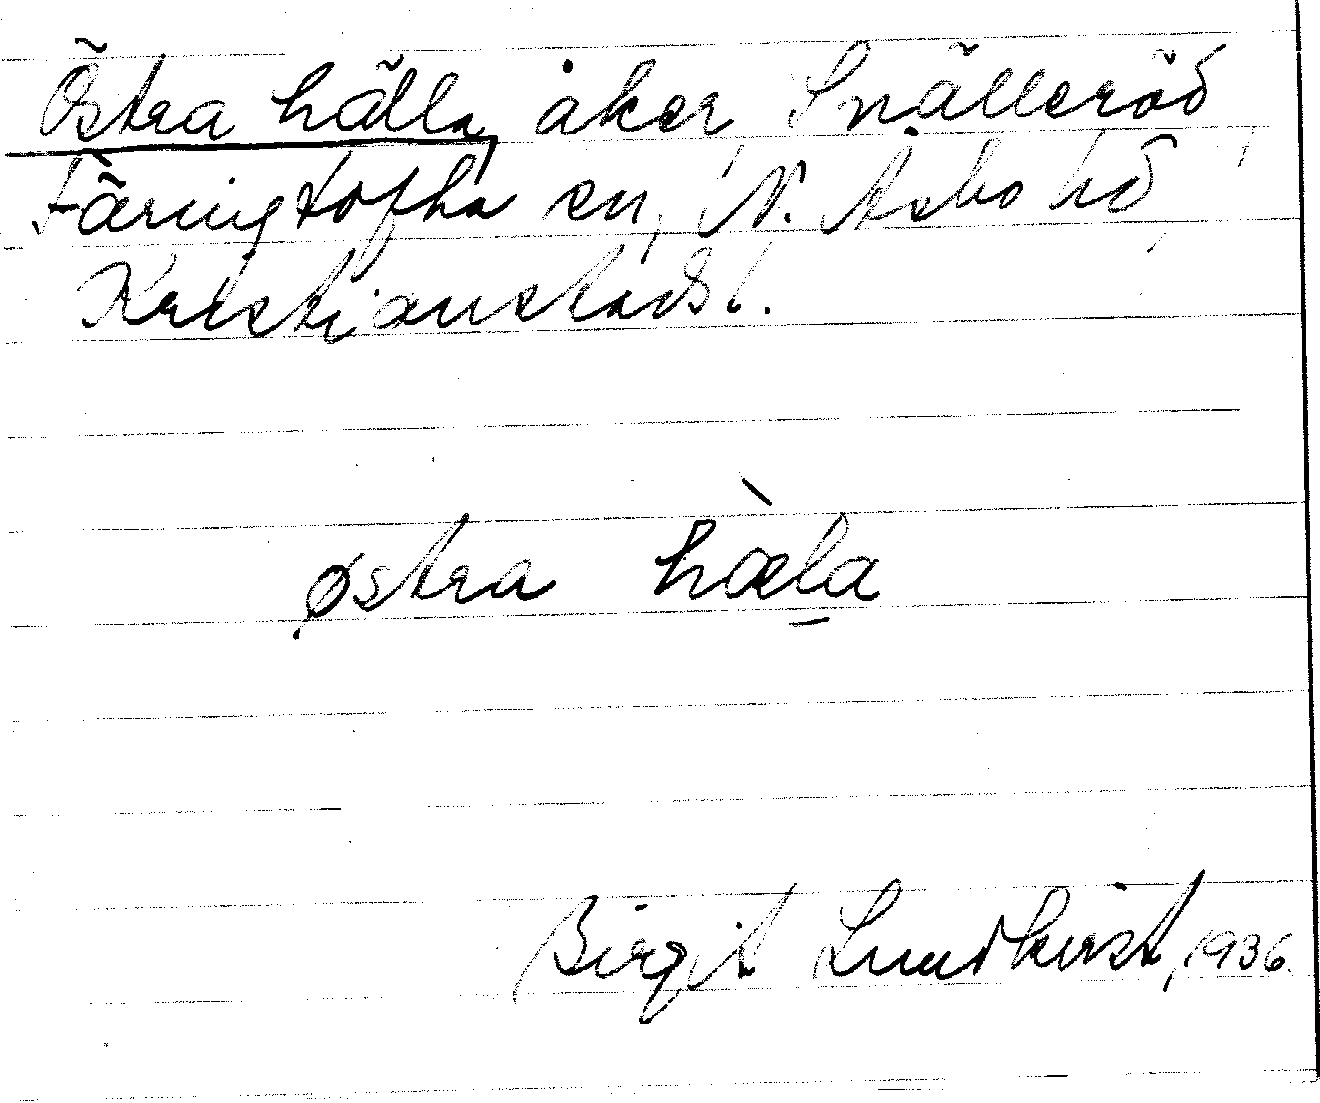 Östra hälla, åker, Snälleröd,
Färingtofta sn, N. Åsbo hd,
Kristianstads l.
østra hὰla
Birgit Lundkvist, 1936.